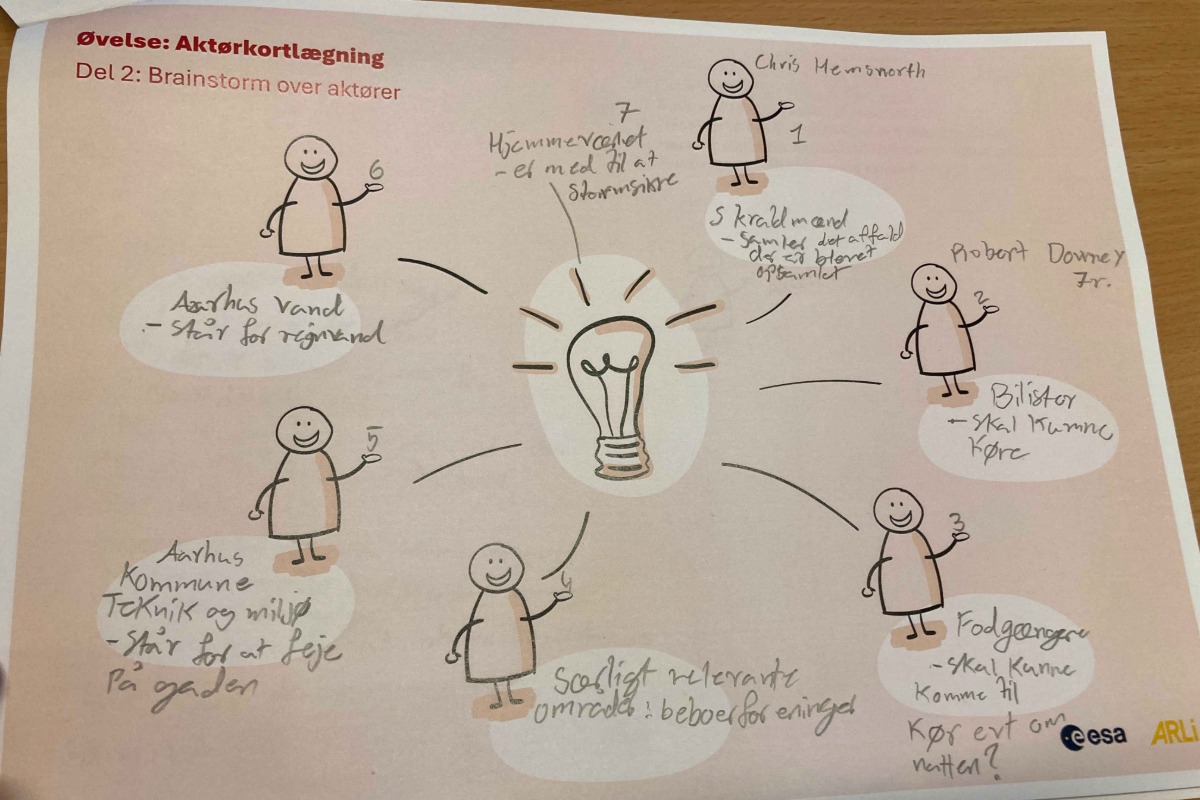 Øvelse: Aktørkortlægning
Del 2: Brainstorm over aktører
Chris Hemsworth
1
Skraldmænd
- samler det affald
der er blevet
opsamlet
Robert Downey
Jr.
2
Bilister
- skal kunne
køre
3
Fodgængere
- skal kunne
komme til
Kør evt om
natten?
4
Særligt relevante
områder: beboerforeninger
5
Aarhus
Kommune
Teknik og miljø
- Står for at feje
på gaden
6
Aarhus Vand
- står for regnvand
7
Hjemmeværnet
- er med til at
stormsikre
esa
ARLi